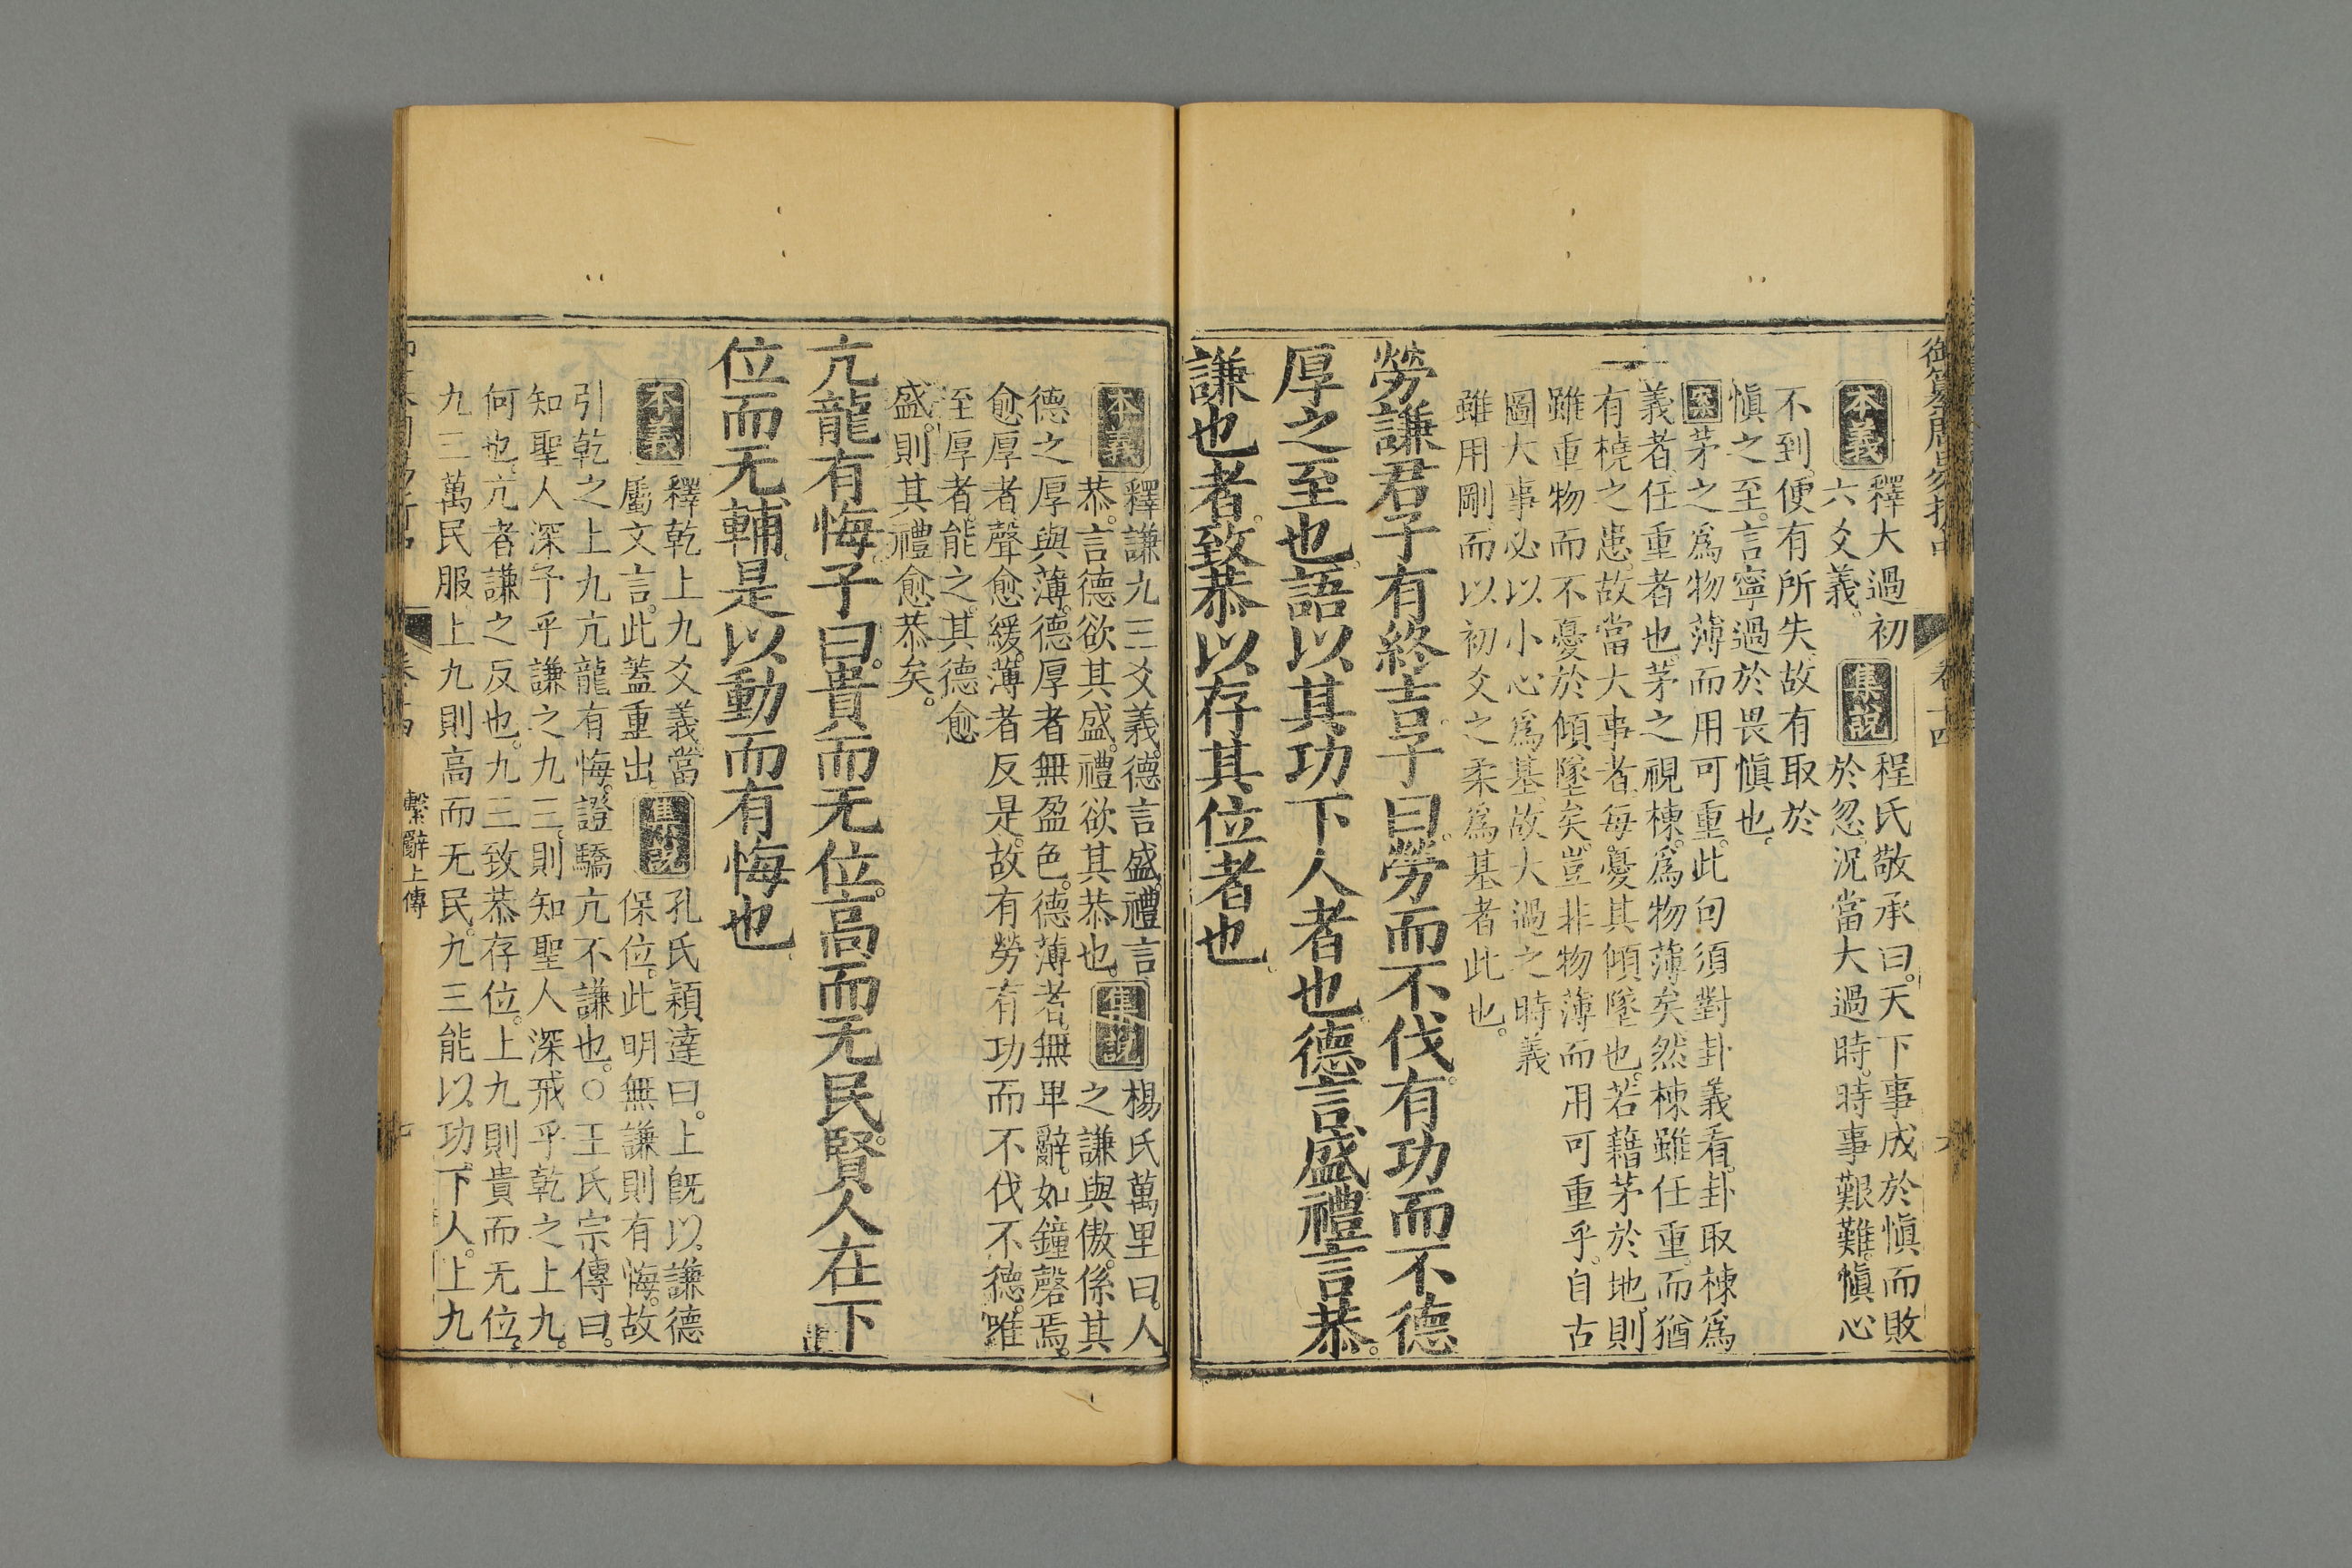 御纂周易折中
卷十四
六
本義
釋大過初
六爻義。
集說
程氏敬承曰。天下事成於愼而敗
於忽。況當大過時。時事艱難。愼心
不到。便有所失。故有取於
愼之至。言寧過於畏愼也。
案茅之爲物薄而用可重。此句須對卦義看。卦取棟爲
義者。任重者也。茅之視棟。爲物薄矣。然棟雖任重。而猶
有橈之患。故當大事者。每憂其傾墜也。若藉茅於地。則
雖重物而不憂於傾墜矣。豈非物薄而用可重乎。自古
圖大事必以小心爲基。故大過之時義
雖用剛而以初爻之柔爲基者此也。
勞謙君子有終吉子曰。勞而不伐。有功而不德
厚之至也。語以其功下人者也。德言盛。禮言恭。
謙也者。致恭以存其位者也。
本義
釋謙九三爻義。德言盛。禮言
恭。言德欲其盛。禮欲其恭也。
集說
楊氏萬里曰。人
之謙與傲。係其
德之厚與薄。德厚者無盈色。德薄者無卑辭。如鐘磬焉。
愈厚者聲愈緩。薄者反是。故有勞有功而不伐不德。唯
至厚者。能之。其德愈
盛。則其禮愈恭矣。
亢龍有悔。子曰。貴而无位。高而无民。賢人在下
位而无輔。是以動而有悔也。
本義
釋乾上九爻義。當
屬文言。此蓋重出
集說
孔氏穎達曰。上旣以謙德
保位。此明無謙則有悔。故
引乾之上九亢龍有悔。證驕亢不謙也。○王氏宗傳曰。
知聖人深予乎謙之九三。則知聖人深戒乎乾之上九。
何也。亢者謙之反也。九三致恭存位。上九則貴而无位。
九三萬民服。上九則高而无民。九三能以功下人。上九
繫辭上傳
七